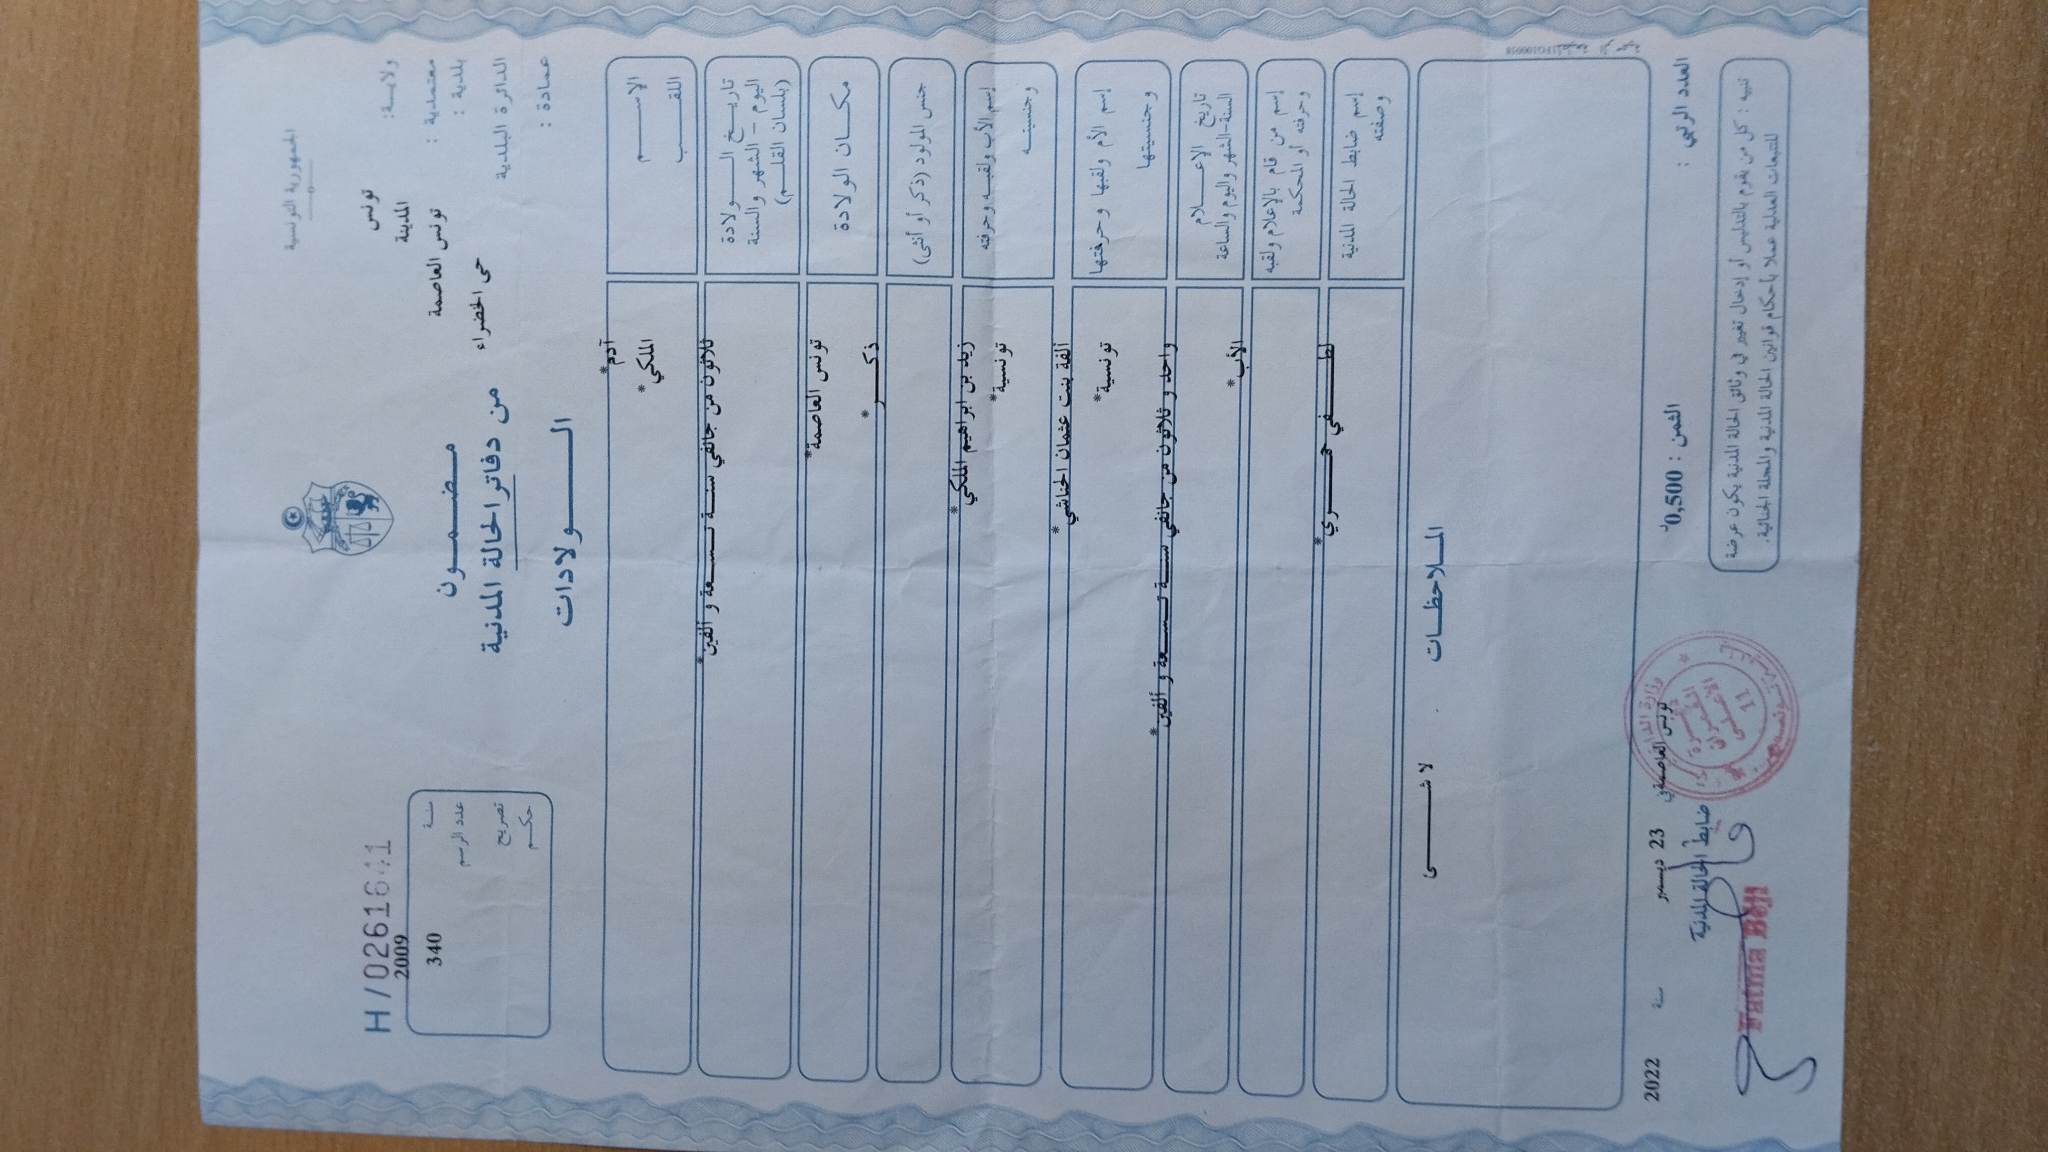 الجمهورية التونسية
ولايـــة: تونس
معتمدية : المدينة
بلدية : تونس العاصمة
الدائرة البلدية حي الخضراء
عمادة :
مـضـمــون
من دفاتر الحالة المدنية
الـــولادات
H/02616
سنة 2009
عدد الرسم 340
تصريح
حكم
الإســـم آدم*
اللقـــب الملكي*
تاريــخ الــولادة
اليوم - الشهر والسنة
(بلسان القلــم)
ثلاثون من جانفي سنـة تـسـعة و ألفين*
مكــان الولادة تونس العاصمة*
جنس المولود (ذكر أو أنثى) ذكـــر*
إسم الأب ولقبـه وحرفته زيد بن ابراهيم الملكي*
وجنسيتــه تونسية*
إسم الأم ولقبها وحرفتها ألفة بنت عثمان الحناشي*
وجنسيتها تونسية*
تاريخ الإعـــلام
السنة-الشهر واليوم والساعة
واحد و ثلاثون من جانفي سنـة تـسـعة و ألفين*
إسم من قام بالإعلام ولقبه
وحرفته أو المحكمة
الأب*
إسم ضابط الحالة المدنية
وصفته
لطــفي حمــري*
المـلاحظـات
لا شــــىء
العدد الرتبي :
الثمن : 0,500
تونس العاصمة في 23 ديسمبر سنة 2022
ضابط الحالة المدنية
Fatma Beji
تنبيه : كل من يقوم بالتدليس أو إدخال تغيير في وثائق الحالة المدنية يكون عرضة
للتتبعات العدلية عملا بأحكام قوانين الحالة المدنية والمجلة الجنائية.